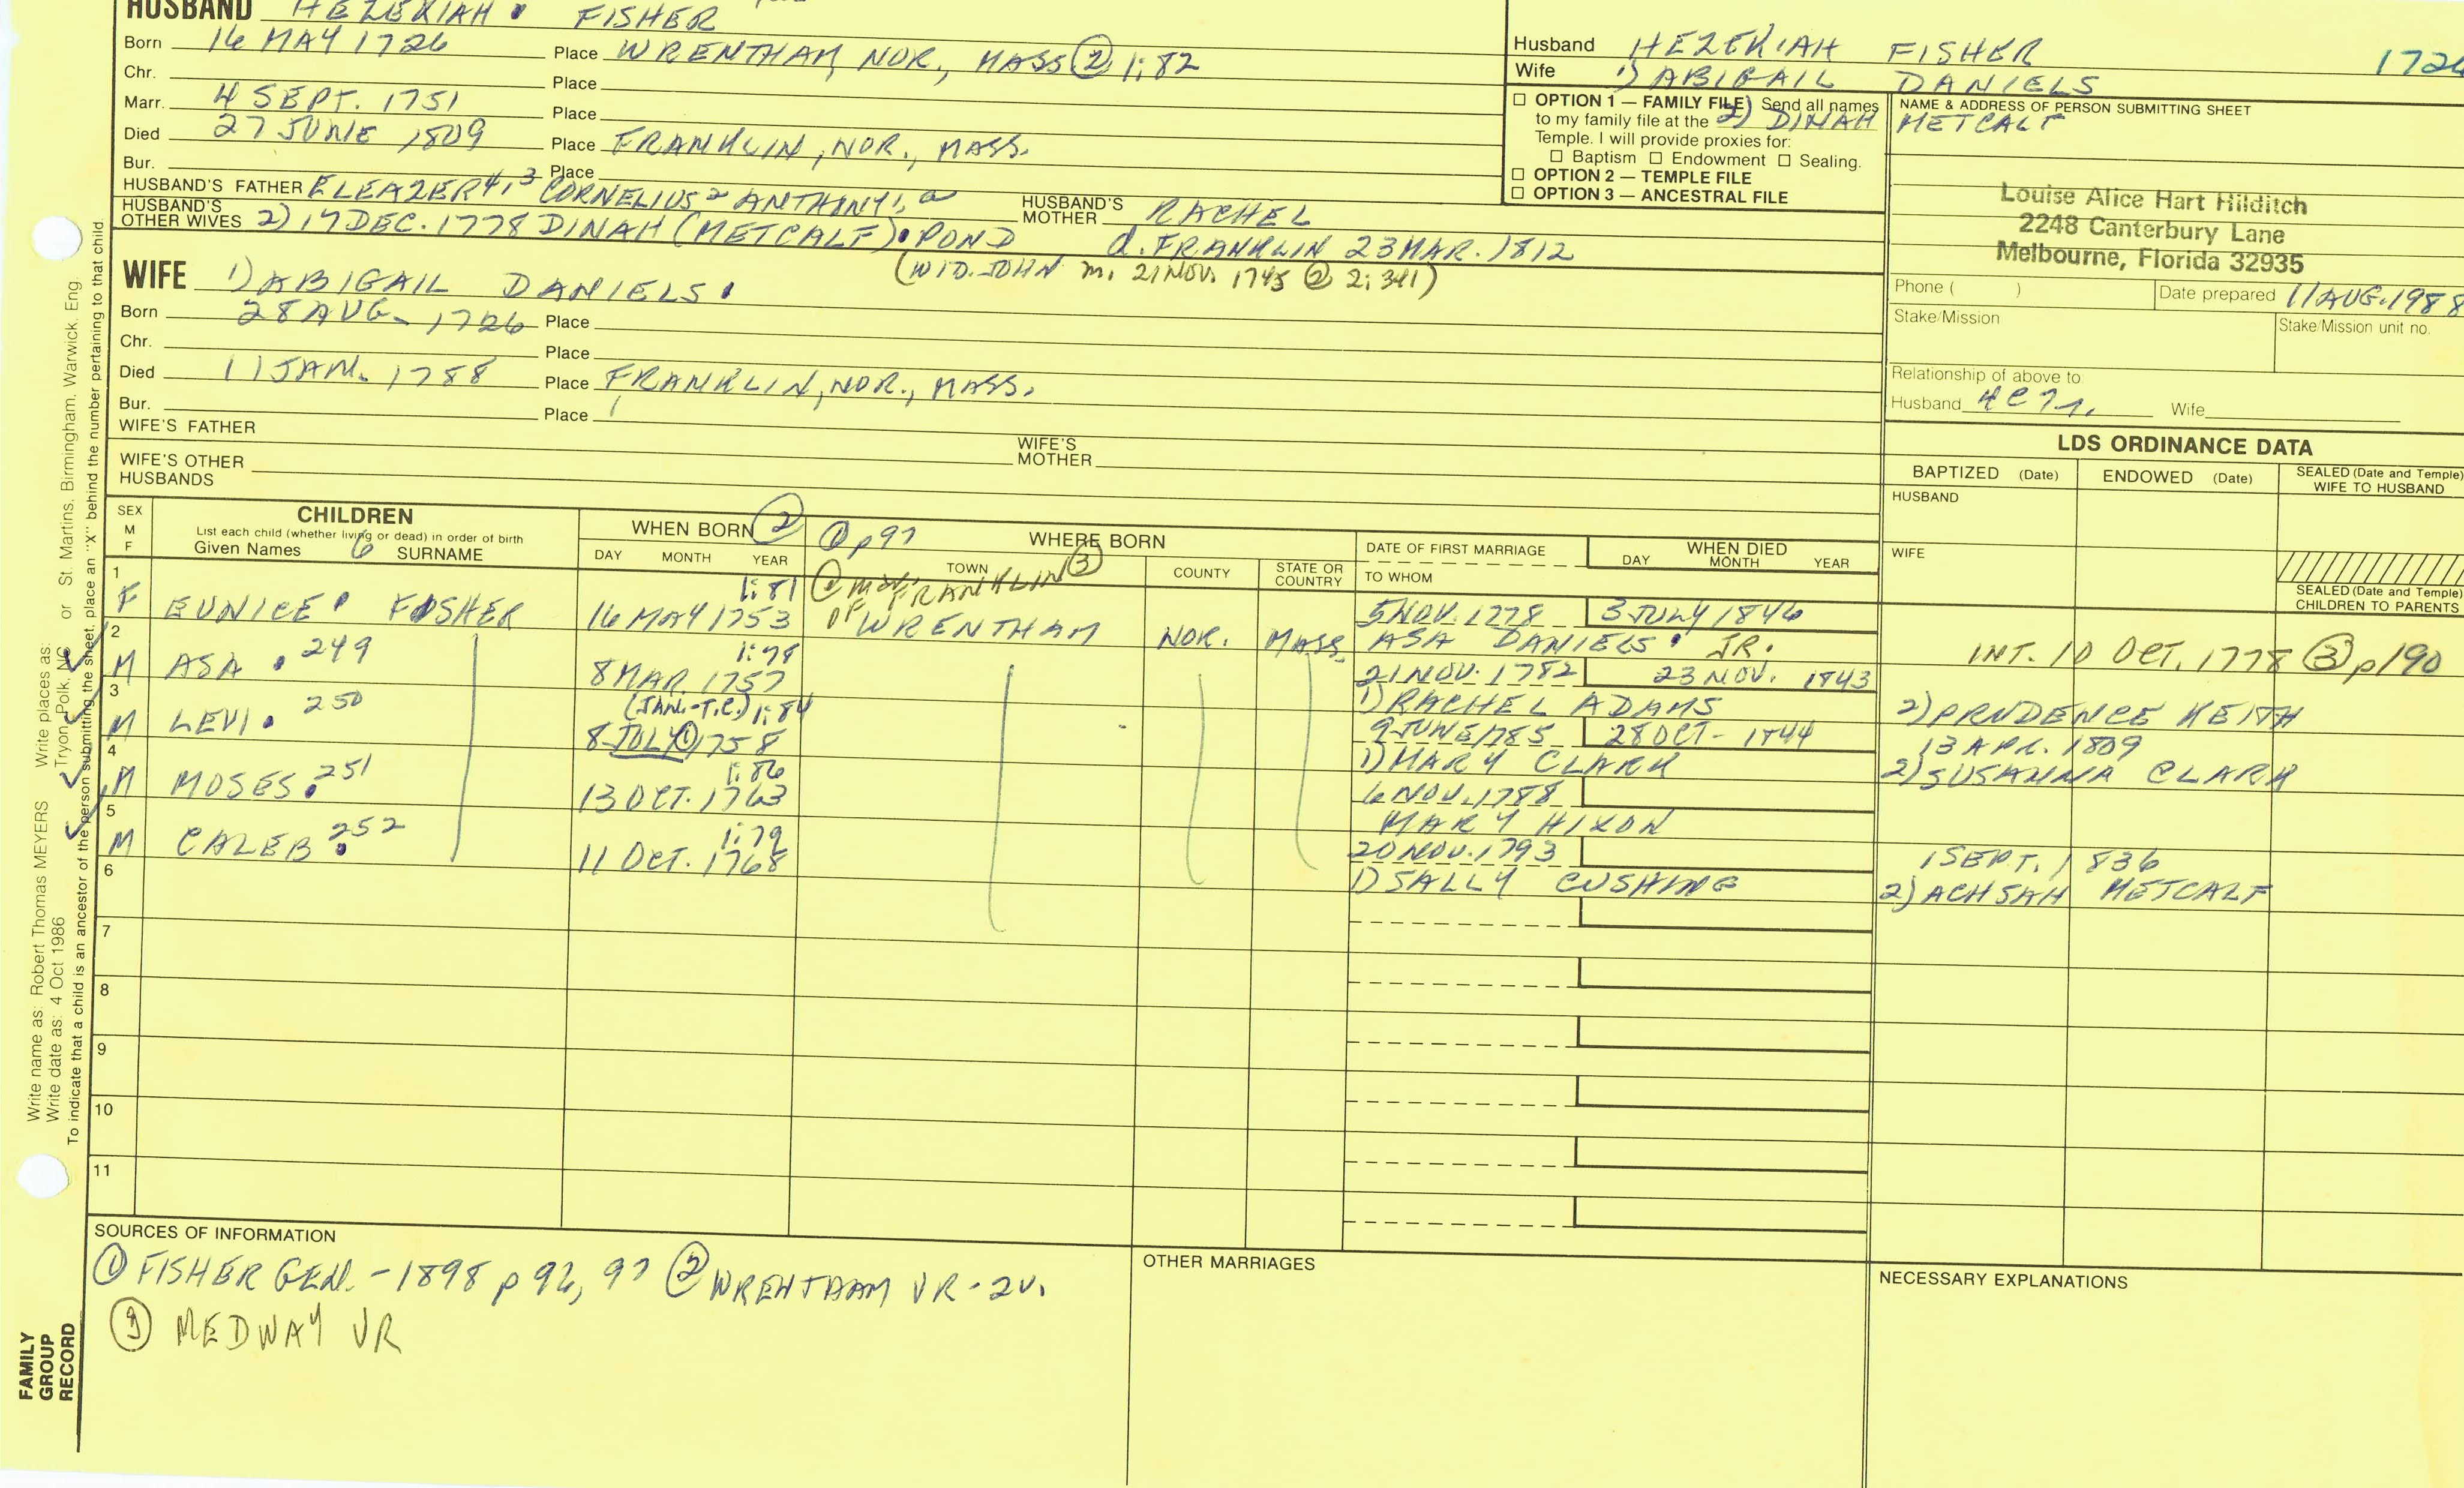 HUSBAND HEZEKIAH FISHER
Born 16 MAY 1726 Place WRENTHAM, NOR., MASS ② 1:82
Chr. Place
Marr. 4 SEPT. 1751 Place
Died 27 JUNE 1809 Place FRANKLIN, NOR., MASS.
Bur. Place
HUSBAND'S FATHER ELEAZER 4,3 CORNELIUS 2 ANTHONY 1, a HUSBAND'S MOTHER RACHEL
HUSBAND'S OTHER WIVES 2) 17 DEC. 1778 DINAH (METCALF) POND d. FRANKLIN 23 MAR. 1812
(WID. JOHN m. 21 NOV. 1745 ② 2:341)
WIFE 1) ABIGAIL DANIELS
Born 28 AUG. 1726 Place
Chr. Place
Died 11 JAN. 1788 Place FRANKLIN, NOR., MASS.
Bur. Place
WIFE'S FATHER WIFE'S MOTHER
WIFE'S OTHER HUSBANDS
Husband HEZEKIAH FISHER 172
Wife 1) ABIGAIL DANIELS
2) DINAH METCALF
☐ OPTION 1 — FAMILY FILE Send all names
to my family file at the
Temple. I will provide proxies for:
☐ Baptism ☐ Endowment ☐ Sealing.
☐ OPTION 2 — TEMPLE FILE
☐ OPTION 3 — ANCESTRAL FILE
NAME & ADDRESS OF PERSON SUBMITTING SHEET
Louise Alice Hart Hilditch
2248 Canterbury Lane
Melbourne, Florida 32935
Phone ( ) Date prepared 11 AUG. 1988
Stake/Mission Stake/Mission unit no.
Relationship of above to:
Husband Wife
LDS ORDINANCE DATA
BAPTIZED (Date) ENDOWED (Date) SEALED (Date and Temple) WIFE TO HUSBAND
HUSBAND
WIFE
SEALED (Date and Temple) CHILDREN TO PARENTS
SEX M F
CHILDREN
List each child (whether living or dead) in order of birth
Given Names 6 SURNAME
WHEN BORN ②
DAY MONTH YEAR
① p97 WHERE BORN
TOWN COUNTY STATE OR COUNTRY
DATE OF FIRST MARRIAGE
TO WHOM
WHEN DIED
DAY MONTH YEAR
FRANKLIN ③
1 F EUNICE FISHER 1:81 16 MAY 1753 OF WRENTHAM NOR. MASS. 5 NOV. 1778 3 JULY 1846
ASA DANIELS JR. INT. 10 OCT. 1778 ③ p190
2 M ASA 249 1:78 8 MAR. 1757 21 NOV. 1782 23 NOV. 1843
(JAN.-T.C.) 1) RACHEL ADAMS 2) PRUDENCE KEITH
3 M LEVI 250 1:84 8 JULY ① 1758 9 JUNE 1785 28 OCT. 1844 13 APR. 1809
1) MARY CLARK 2) SUSANNA CLARK
4 M MOSES 251 1:86 13 OCT. 1763 6 NOV. 1788
MARY HIXON
5 M CALEB 252 1:79 11 OCT. 1768 20 NOV. 1793 1 SEPT. 1836
1) SALLY CUSHING 2) ACHSAH METCALF
6
7
8
9
10
11
SOURCES OF INFORMATION
① FISHER GEN. - 1898 p 96, 97 ② WRENTHAM VR - 2V.
③ MEDWAY VR
OTHER MARRIAGES
NECESSARY EXPLANATIONS
Write name as: Robert Thomas MEYERS Write places as: Tryon, Polk, NC or St. Martins, Birmingham, Warwick, Eng.
Write date as: 4 Oct 1986
To indicate that a child is an ancestor of the person submitting the sheet, place an "X" behind the number pertaining to that child.
FAMILY
GROUP
RECORD